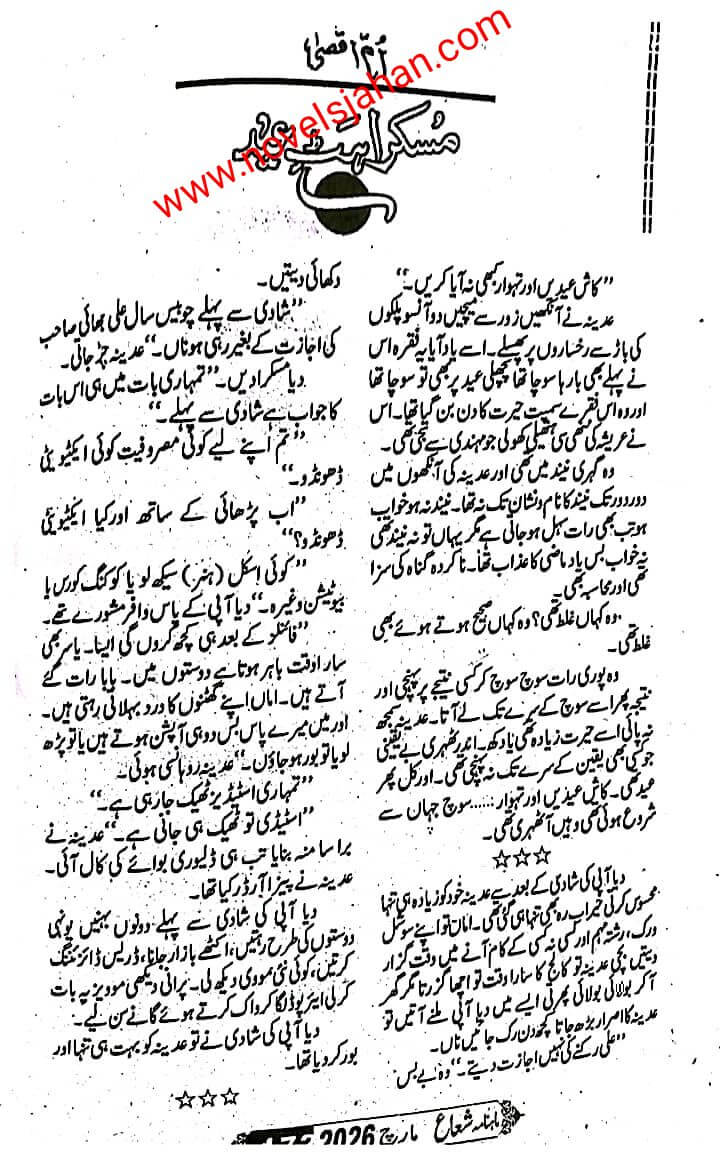 اُمِّ اقصیٰ
مُسکراہٹِ عید
www.novelsjahan.com
”کاش عیدیں اور تہوار کبھی نہ آیا کریں۔“
عدینہ نے آنکھیں زور سے میچیں دو آنسو پلکوں
کی باڑ سے رخساروں پر پھسلے۔ اسے یاد آیا یہ فقرہ اس
نے پہلے بھی بارہا سوچا تھا پچھلی عید پر بھی تو سوچا تھا
اور وہ اس فقرے سمیت حیرت کا دن بن گیا تھا۔ اس
نے عریشہ کی ننھی سی ہتھیلی کھولی جو مہندی سے سجی تھی۔
وہ گہری نیند میں تھی اور عدینہ کی آنکھوں میں
دور دور تک نیند کا نام و نشان تک نہ تھا۔ نیند نہ ہو خواب
ہو تب بھی رات بہل ہو جاتی ہے مگر یہاں تو نہ نیند تھی
نہ خواب بس یاد ماضی کا عذاب تھا۔ ناکردہ گناہ کی سزا
تھی اور محاسبہ بھی۔
وہ کہاں غلط تھی؟ وہ کہاں صحیح ہوتے ہوئے بھی
غلط تھی۔
وہ پوری رات سوچ سوچ کر کسی نتیجے پر پہنچی اور
نتیجہ پھر اسے سوچ کے سرے تک لے آتا۔ عدینہ سمجھ
نہ پائی اسے حیرت زیادہ تھی یا دکھ۔ اندر ٹھہری بے یقینی
جو کبھی بھی یقین کے سرے تک نہ پہنچی تھی۔ اور کل پھر
عید تھی۔ کاش عیدیں اور تہوار...... سوچ جہاں سے
شروع ہوئی تھی وہیں آ ٹھہری تھی۔
☆☆☆
دیا آپی کی شادی کے بعد سے عدینہ خود کو زیادہ ہی تنہا
محسوس کرتی خیر اب رہ بھی تنہا ہی گئی تھی۔ اماں تو اپنے سوشل
ورک، رشتہ مہم اور کسی نہ کسی کے کام آنے میں وقت گزار
دیتیں بچی عدینہ تو کالج کا سارا وقت تو اچھا گزرتا مگر گھر
آ کر بولائی بولائی پھرتی ایسے میں دیا آپی ملنے آتیں تو
عدینہ کا اصرار بڑھ جاتا کچھ دن رک جائیں ناں۔
”علی رکنے کی نہیں اجازت دیتے۔“ وہ بے بس
دکھائی دیتیں۔
”شادی سے پہلے چوبیس سال علی بھائی صاحب
کی اجازت کے بغیر رہی ہو ناں۔“ عدینہ چڑ جاتی۔
دیا مسکرا دیں۔ ”تمہاری بات میں ہی اس بات
کا جواب ہے شادی سے پہلے۔“
”تم اپنے لیے کوئی مصروفیت کوئی ایکٹیویٹی
ڈھونڈو۔“
”اب پڑھائی کے ساتھ اور کیا ایکٹیویٹی
ڈھونڈو؟“
”کوئی اسکل (ہنر) سیکھ لو یا کوکنگ کورس یا
بیوٹیشن وغیرہ۔“ دیا آپی کے پاس وافر مشورے تھے۔
”فائنلز کے بعد ہی کچھ کروں گی ایسا۔ یاسر بھی
سارا وقت باہر ہوتا ہے دوستوں میں۔ پاپا رات گئے
آتے ہیں۔ اماں اپنے گھٹنوں کا درد بہلاتی رہتی ہیں۔
اور میں میرے پاس بس دو ہی آپشن ہوتے ہیں یا تو پڑھ
لو یا تو بور ہو جاؤں۔“ عدینہ روہانسی ہوئی۔
”تمہاری اسٹیڈیز ٹھیک جا رہی ہے۔“
”اسٹیڈی تو ٹھیک ہی جانی ہے۔“ عدینہ نے
برا سا منہ بنایا تب ہی ڈلیوری بوائے کی کال آئی۔
عدینہ نے پیزا آرڈر کیا تھا۔
دیا آپی کی شادی سے پہلے دونوں بہنیں یونہی
دوستوں کی طرح رہتیں، اکٹھے بازار جانا، ڈریس ڈائزننگ
کرتیں، کوئی نئی مووی دیکھ لی۔ پرانی دیکھی موویز پہ بات
کر لی ایئر پوڈ لگا کر واک کرتے ہوئے گانے سن لیے۔
دیا آپی کی شادی نے تو عدینہ کو بہت ہی تنہا اور
بور کر دیا تھا۔
☆☆☆
ماہنامہ شعاع مارچ 2026